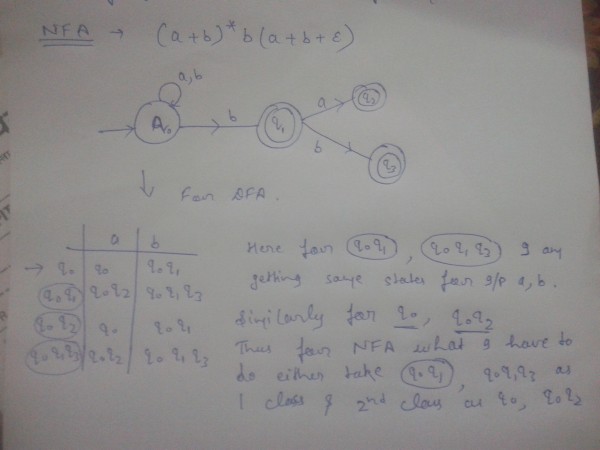 NFA → (a+b)* b (a+b+ε)
a,b
A q0 b q1 a q2
b q3
↓ For DFA.
a b
→ q0 q0 q0q1
q0q1 q0q2 q0q1q3
q0q2 q0 q0q1
q0q1q3 q0q2 q0q1q3
Here for q0q1, q0q1q3 I am
getting same states for i/p a, b.
Similarly for q0, q0q2
Thus for NFA what I have to
do either take q0q1, q0q1q3 as
1 class & 2nd class as q0, q0q2